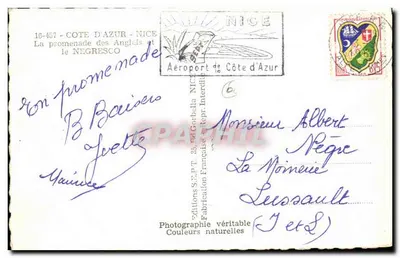 16-467 - COTE D'AZUR - NICE
La promenade des Anglais et
le NEGRESCO
NICE
Aéroport de la Côte d'Azur
6
En promenade
B Baisers
Yvette
Maurice
Editions S.E.P.T.
Fabrication Française
Reprod. Interdite
Monsieur Albert
Nègre
La Moinerie
Lussault
(I et L)
Photographie véritable
Couleurs naturelles